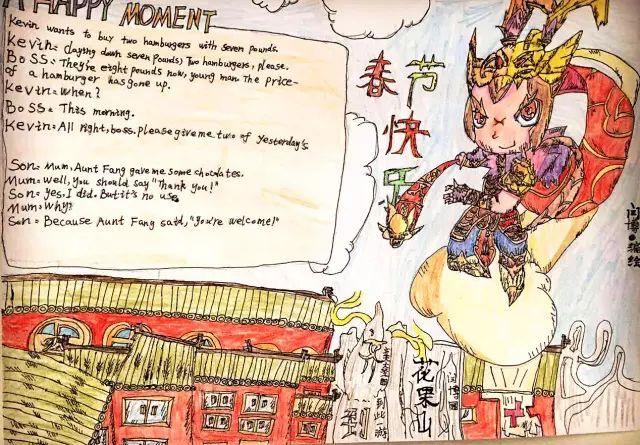 A HAPPY MOMENT
Kevin wants to buy two hamburgers with seven pounds.
Kevin: (laying down seven pounds) Two hamburgers, please.
BoSS: They're eight pounds now, young man. The price
of a hamburger has gone up.
Kevin: When?
BoSS: This morning.
Kevin: All right, boss. please give me two of yesterday's
Son: Mum, Aunt Fang gave me some chocolates.
Mum: Well, you should say "Thank you!"
Son: Yes, I did. But it's no use.
Mum: Why?
Son: Because Aunt Fang said, "you're welcome!"
春节
快乐
花果山
到此一游